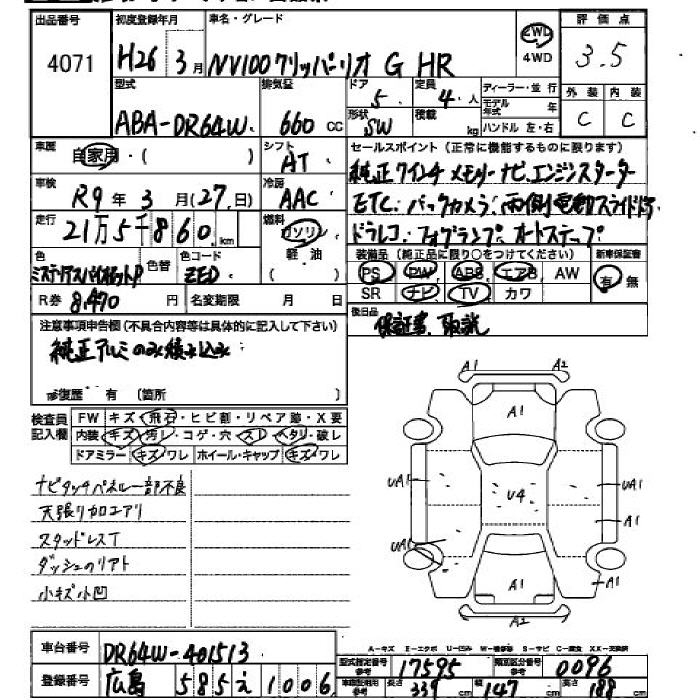 出品番号 初度登録年月 車名・グレード 評価点
4071 H26年3月 NV100クリッパーリオ G HR 2WD 4WD 3.5
型式 排気量 ドア 定員 ディーラー・並行 外装 内装
ABA-DR64W 660cc 5 4人 モデル年式 年 C C
形状 SW 積載 kg ハンドル 左・右
車歴 自家用・( ) シフト AT セールスポイント(正常に機能するものに限ります)
純正7インチメモリーナビ.エンジンスターター
車検 R9年3月(27日) 冷房 AAC ETC.バックカメラ.両側電動スライドドア
走行 21万5千860km 燃料 ガソリン 軽油 ドラレコ.フォグランプ.オートステップ
色 ミステリアスバイオレットP 色替 色コード ZED 装備品(純正品に限り○をつけてください) 新車保証書
PS PW ABS エアB AW 有 無
R券 8,470円 名変期限 月 日 SR ナビ TV カワ
注意事項申告欄(不具合内容等は具体的に記入して下さい) 後日品 保証書、取説
純正アルミのみ積み込み
修復歴 有 (箇所 )
検査員記入欄 FW キズ・飛石・ヒビ割・リペア跡・X要
内装 キズ・汚レ・コゲ・穴・スレ・ヘタリ・破レ
ドアミラー キズ・ワレ ホイール・キャップ キズ・ワレ
ナビタッチパネル一部不良
天張り加工アリ
スタッドレスT
ダッシュのリアト
小キズ小凹
A1 A2
A1
UA1 U4 UA1
A1
UA1
A1 A1
A2
車台番号 DR64W-401513
A-キズ E-エクボ U-凹み W-補修跡 S-サビ C-腐食 XX-交換済
型式指定番号 参考 17595 類別区分番号 参考 0096
登録番号 広島 585 え 1006 長さ 339cm 幅 147cm 高さ 188cm